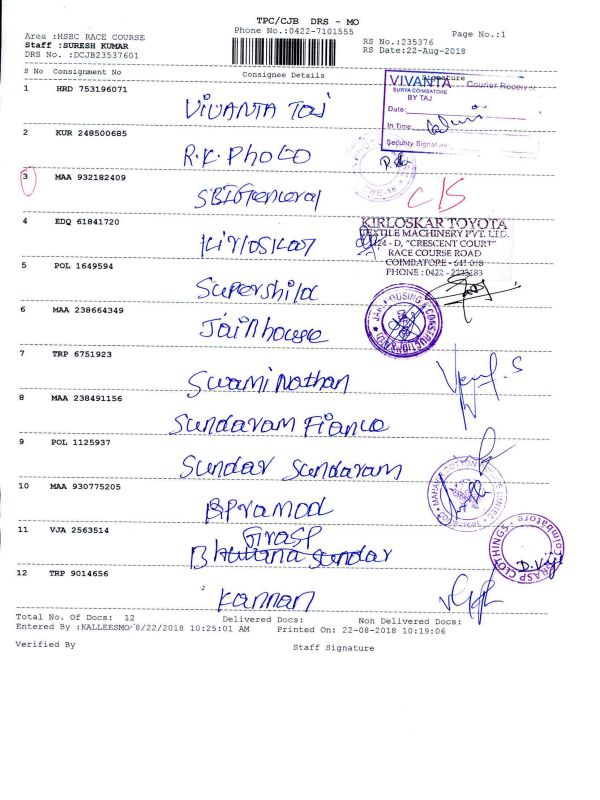 TPC/CJB DRS - MO
Phone No.:0422-7101555
Page No.:1
Area :HSBC RACE COURSE
RS No.:235376
Staff :SURESH KUMAR
RS Date:22-Aug-2018
DRS No. :DCJB23537601
S No Consignment No Consignee Details Signature
1 HRD 753196071 VIVANTA TAJ
VIVANTA Courier Received
SURYA COIMBATORE
BY TAJ
Date:
In Time
Security Signature
2 KUR 248500685 R.K. Photo
3 MAA 932182409 SBI General C/S
4 EDQ 61841720 Kirloskar
KIRLOSKAR TOYOTA
TEXTILE MACHINERY PVT. LTD.
124 - D, "CRESCENT COURT"
RACE COURSE ROAD
COIMBATORE - 641 018
PHONE : 0422 - 2223183
5 POL 1649594 Supershild
6 MAA 238664349 Jain house
HOUSING & CONSTRUCTIONS
7 TRP 6751923 Swami Nathan
8 MAA 238491156 Sundaram Fianco
9 POL 1125937 Sundar Sundaram
10 MAA 930775205 B Pramod
11 VJA 2563514 Grasp
GRASP CLOTHINGS - Coimbatore
D. Viji
12 TRP 9014656 Kannan
Total No. Of Docs: 12 Delivered Docs: Non Delivered Docs:
Entered By :KALLEESMO 8/22/2018 10:25:01 AM Printed On: 22-08-2018 10:19:06
Verified By Staff Signature